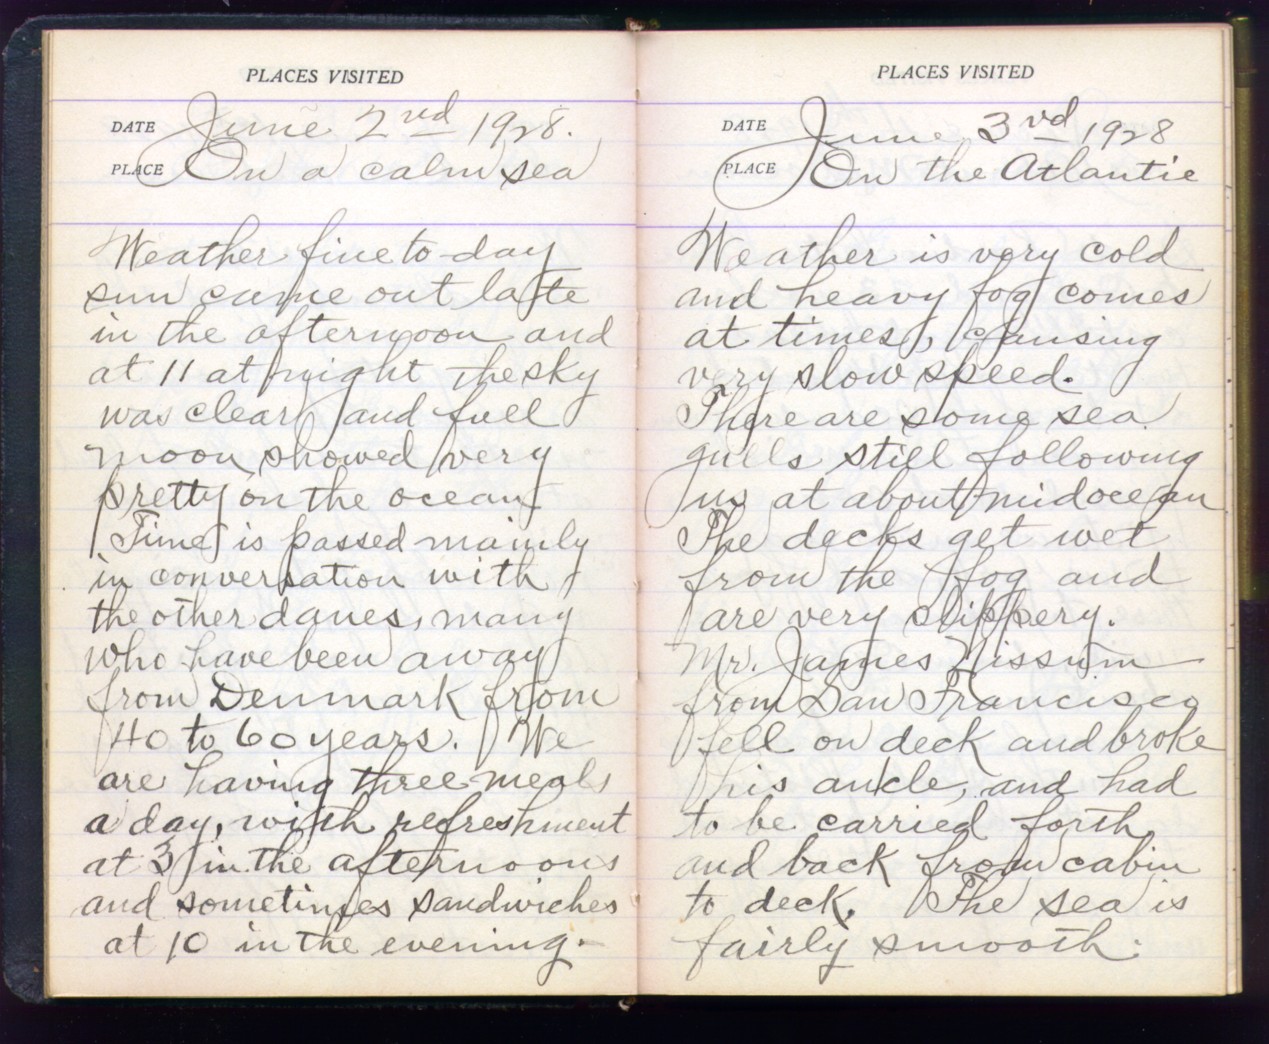 PLACES VISITED
DATE June 2nd 1928.
PLACE On a calm sea
Weather fine to-day
sun came out late
in the afternoon and
at 11 at night the sky
was clear and full
moon showed very
pretty on the ocean
Time is passed mainly
in conversation with
the other danes, many
who have been away
from Denmark from
40 to 60 years. We
are having three meals
a day, with refreshment
at 3 in the afternoons
and sometimes sandwiches
at 10 in the evening.
PLACES VISITED
DATE June 3rd 1928
PLACE On the Atlantic
Weather is very cold
and heavy fog comes
at times, causing
very slow speed.
There are some sea
gulls still following
us at about midocean
The decks get wet
from the fog and
are very slippery.
Mr. James Nissum
from San Francisco
fell on deck and broke
his ankle, and had
to be carried forth
and back from cabin
to deck. The sea is
fairly smooth.